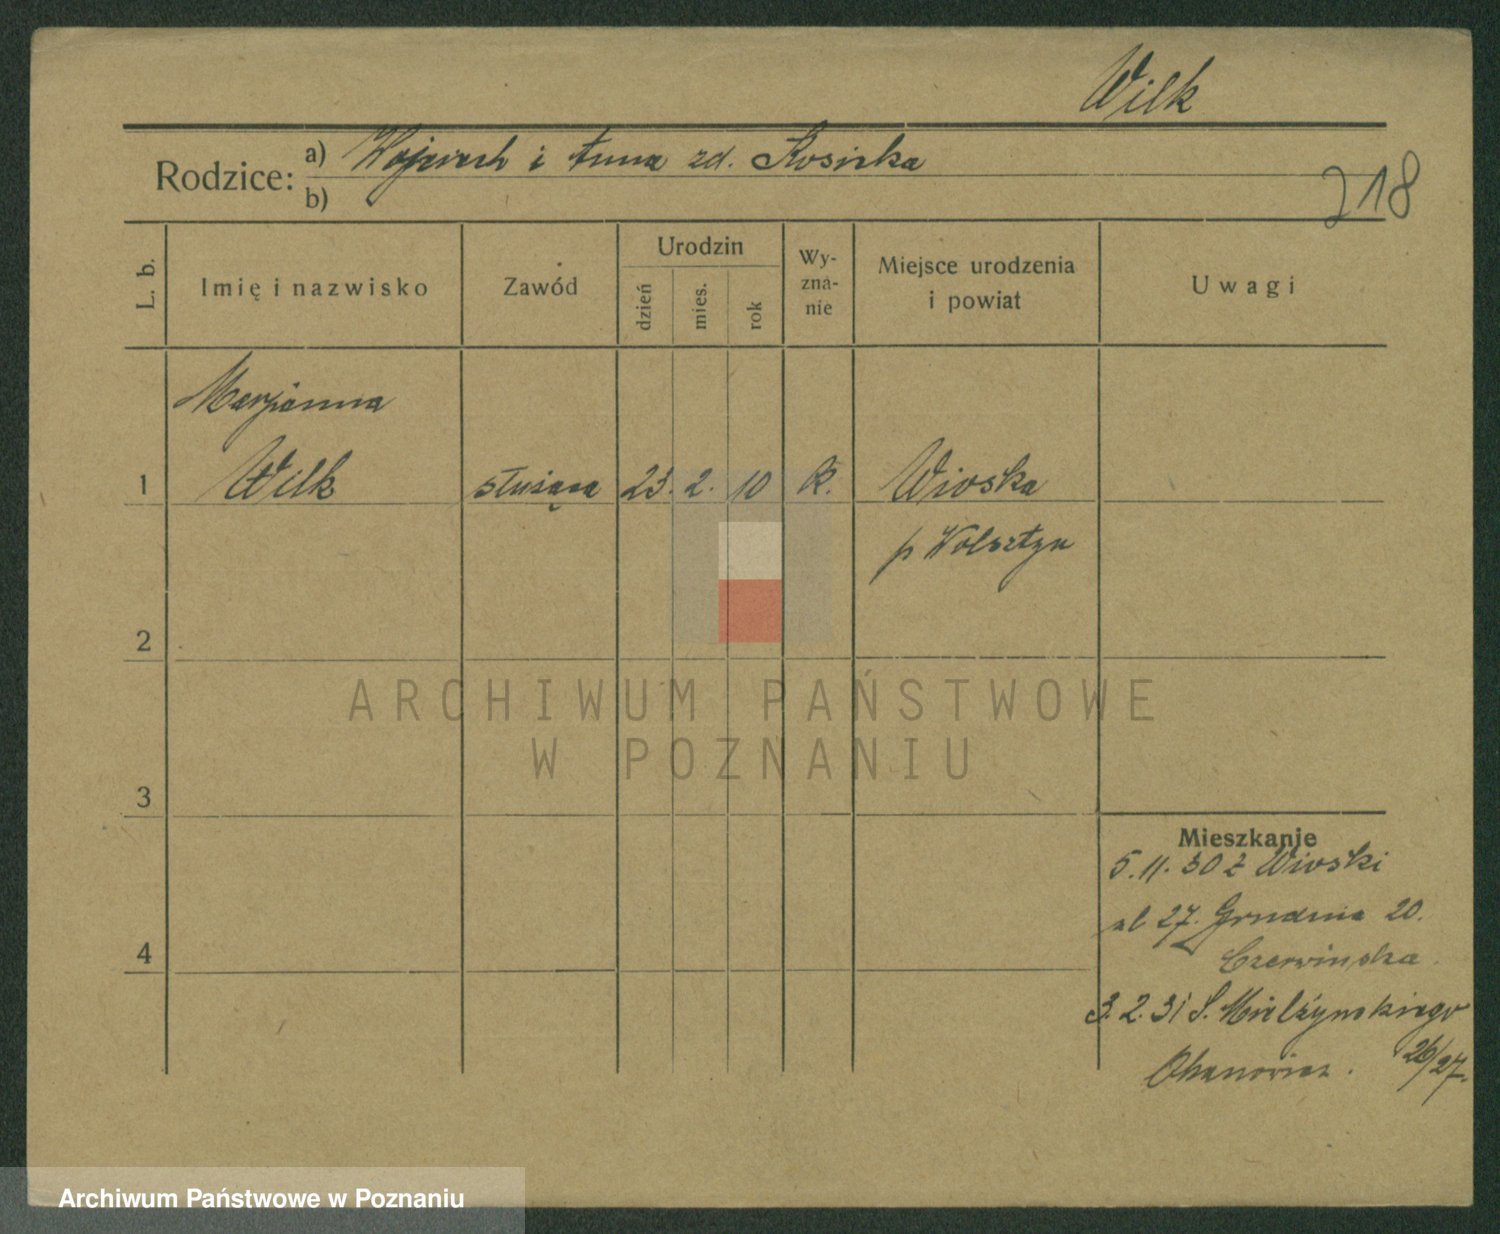 Wilk
Rodzice: a) Wojciech i Anna zd. Kosicka
b)
218
L. b.
Imię i nazwisko
Zawód
Urodzin
dzień
mies.
rok
Wy-
zna-
nie
Miejsce urodzenia
i powiat
Uwagi
Marjanna
1 Wilk służąca 23. 2. 10 K. Wioska
p Wolsztyn
2
3
4
ARCHIWUM PAŃSTWOWE
W POZNANIU
Mieszkanie
5.11.30 z Wioski
27. Grudnia 20.
Czerwińska.
3.2.31 S. Mielżyńskiego
26/27.
Archiwum Państwowe w Poznaniu